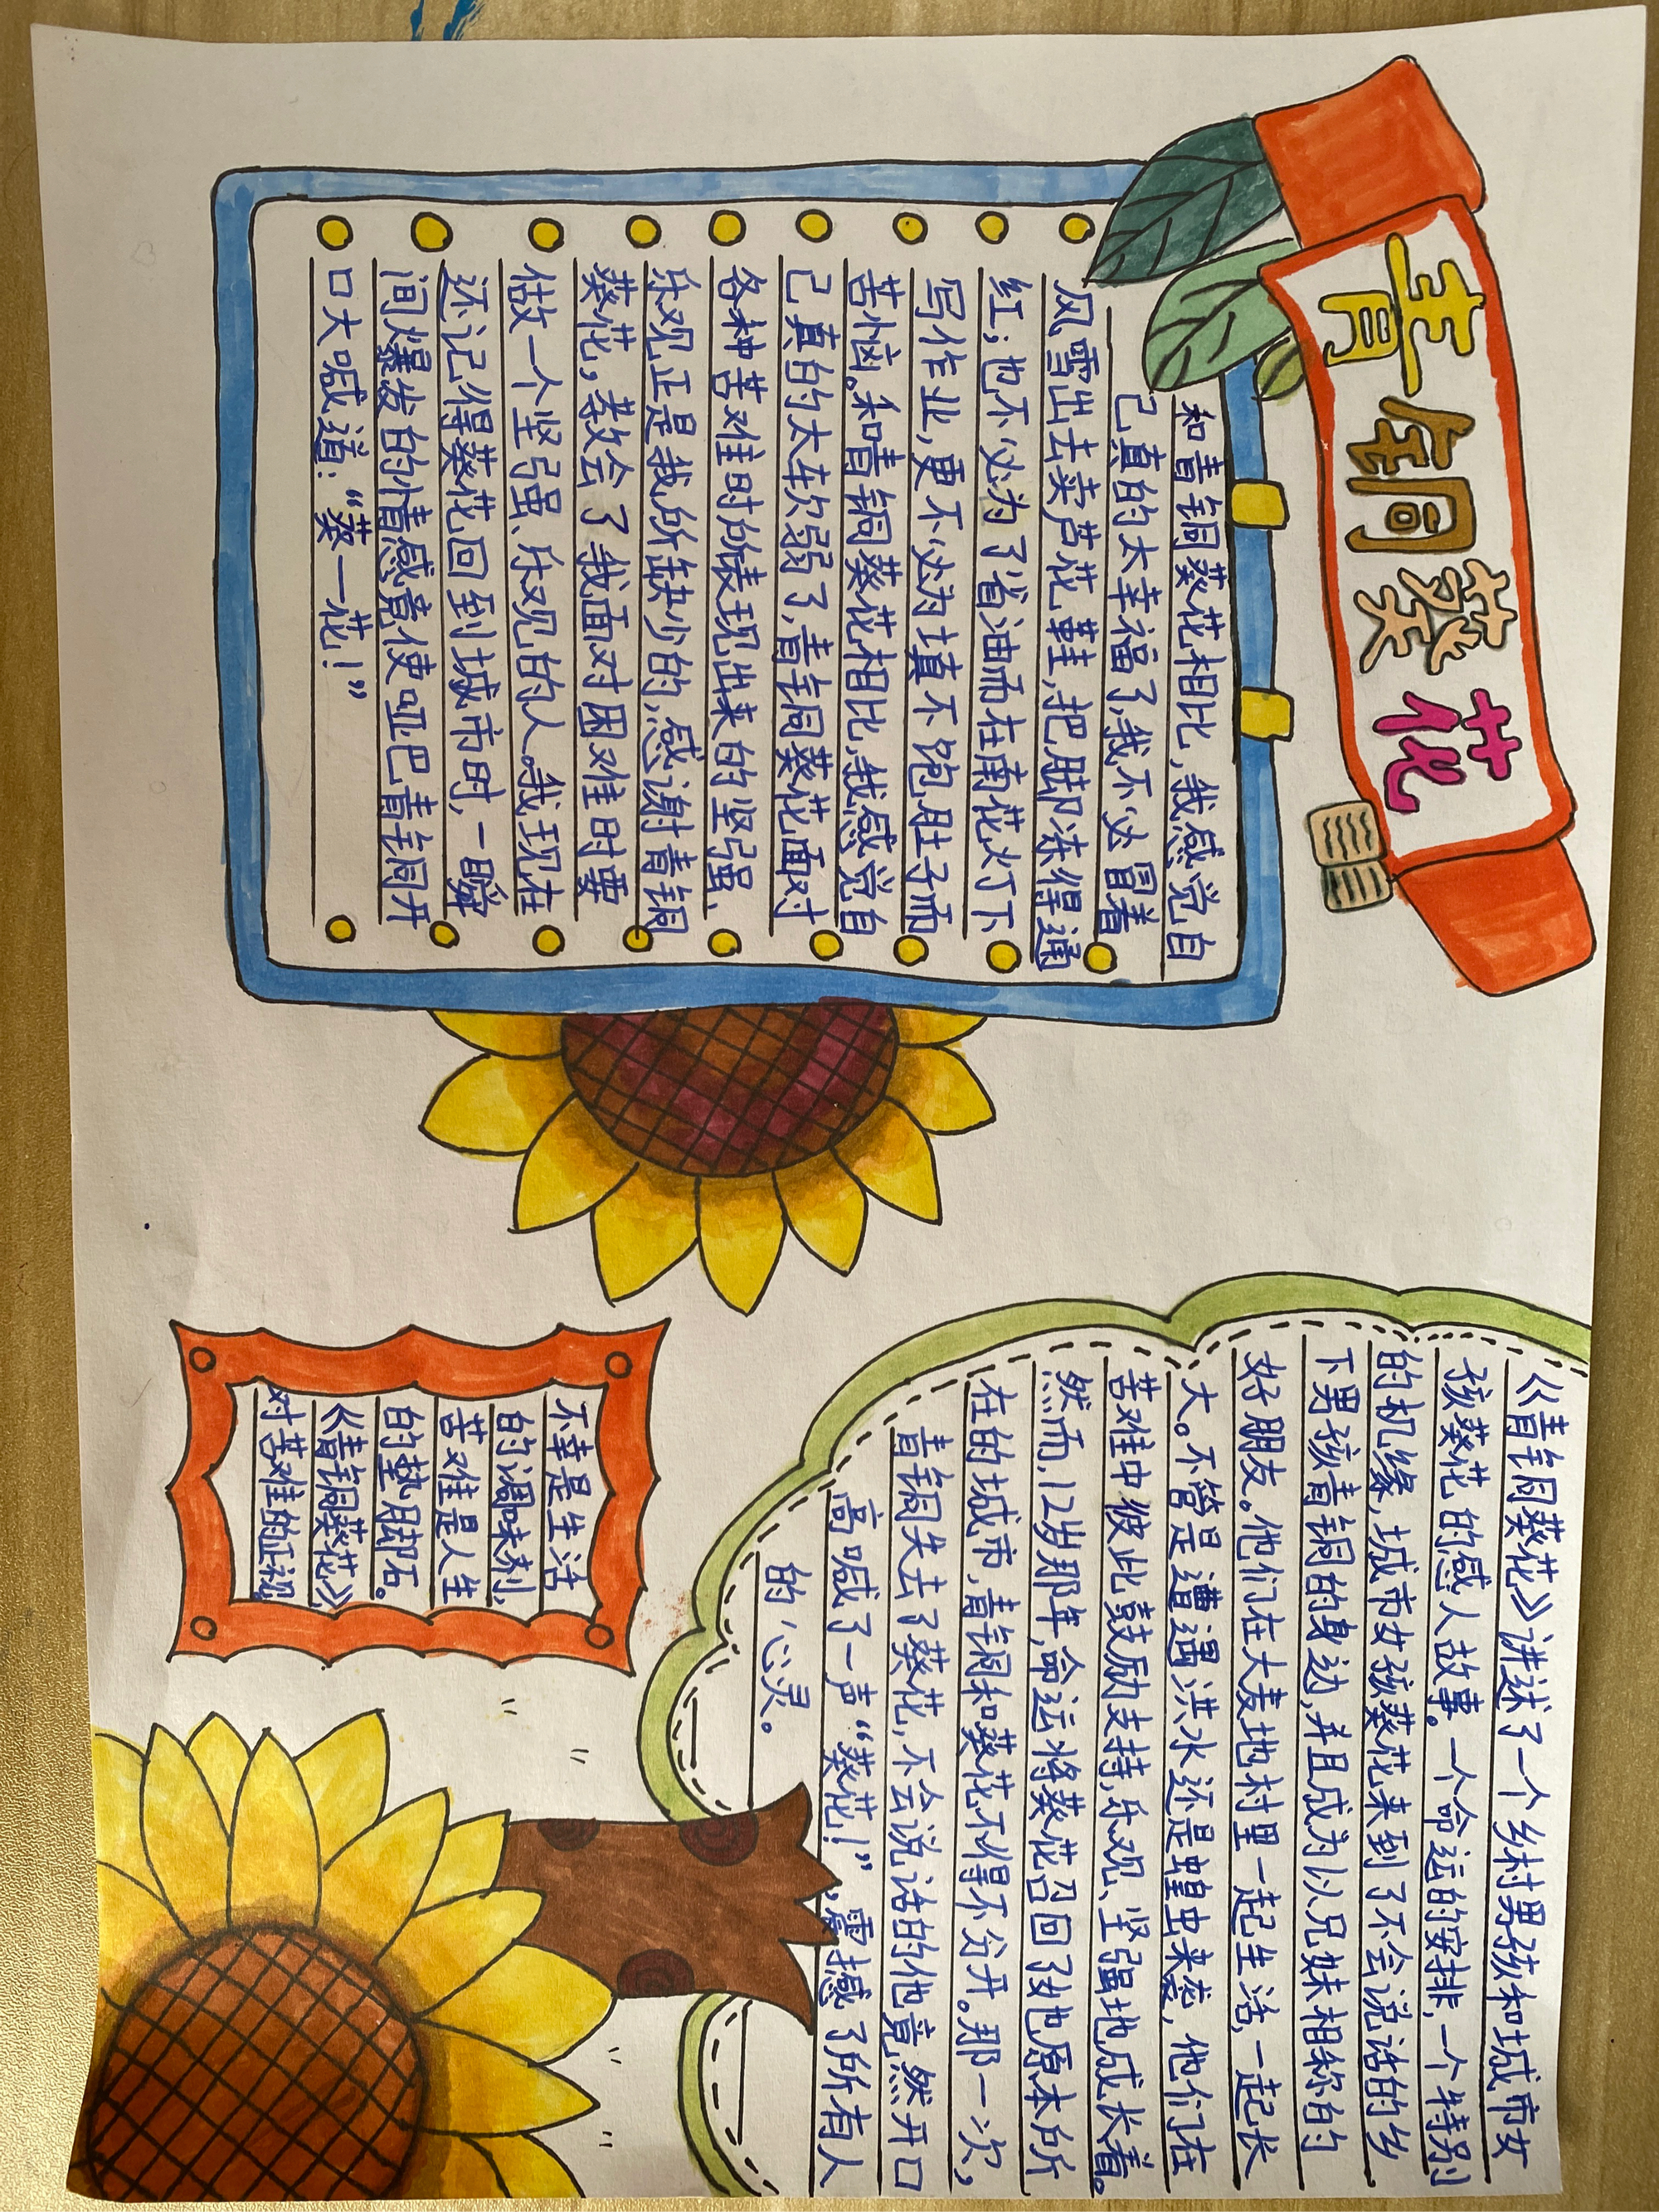 青铜葵花
和青铜葵花相比,我感觉自
己真的太幸福了,我不必冒着
风雪出去卖芦花鞋,把脚冻得通
红;也不必为了省油而在南花灯下
写作业,更不必为填不饱肚子而
苦恼。和青铜葵花相比,我感觉自
己真的太软弱了,青铜葵花面对
各种苦难时所表现出来的坚强、
乐观正是我所缺少的,感谢青铜
葵花,教会了我面对困难时要
做一个坚强、乐观的人。我现在
还记得葵花回到城市时,一瞬
间爆发的情感竟使哑巴青铜开
口大喊道:“葵一花!”
《青铜葵花》讲述了一个乡村男孩和城市女
孩葵花的感人故事。一个命运的安排,一个特别
的机缘,城市女孩葵花来到了不会说话的乡
下男孩青铜的身边,并且成为以兄妹相称的
好朋友。他们在大麦地村里一起生活,一起长
大。不管是遭遇洪水还是蝗虫来袭,他们在
苦难中彼此鼓励支持,乐观、坚强地成长着。
然而,12岁那年,命运将葵花召回了她原本所
在的城市,青铜和葵花不得不分开。那一次,
青铜失去了葵花,不会说话的他竟然开口
高喊了一声“葵花!”,震撼了所有人
的心灵。
不幸是生活
的调味剂,
苦难是人生
的垫脚石。
《青铜葵花》
对苦难的正视